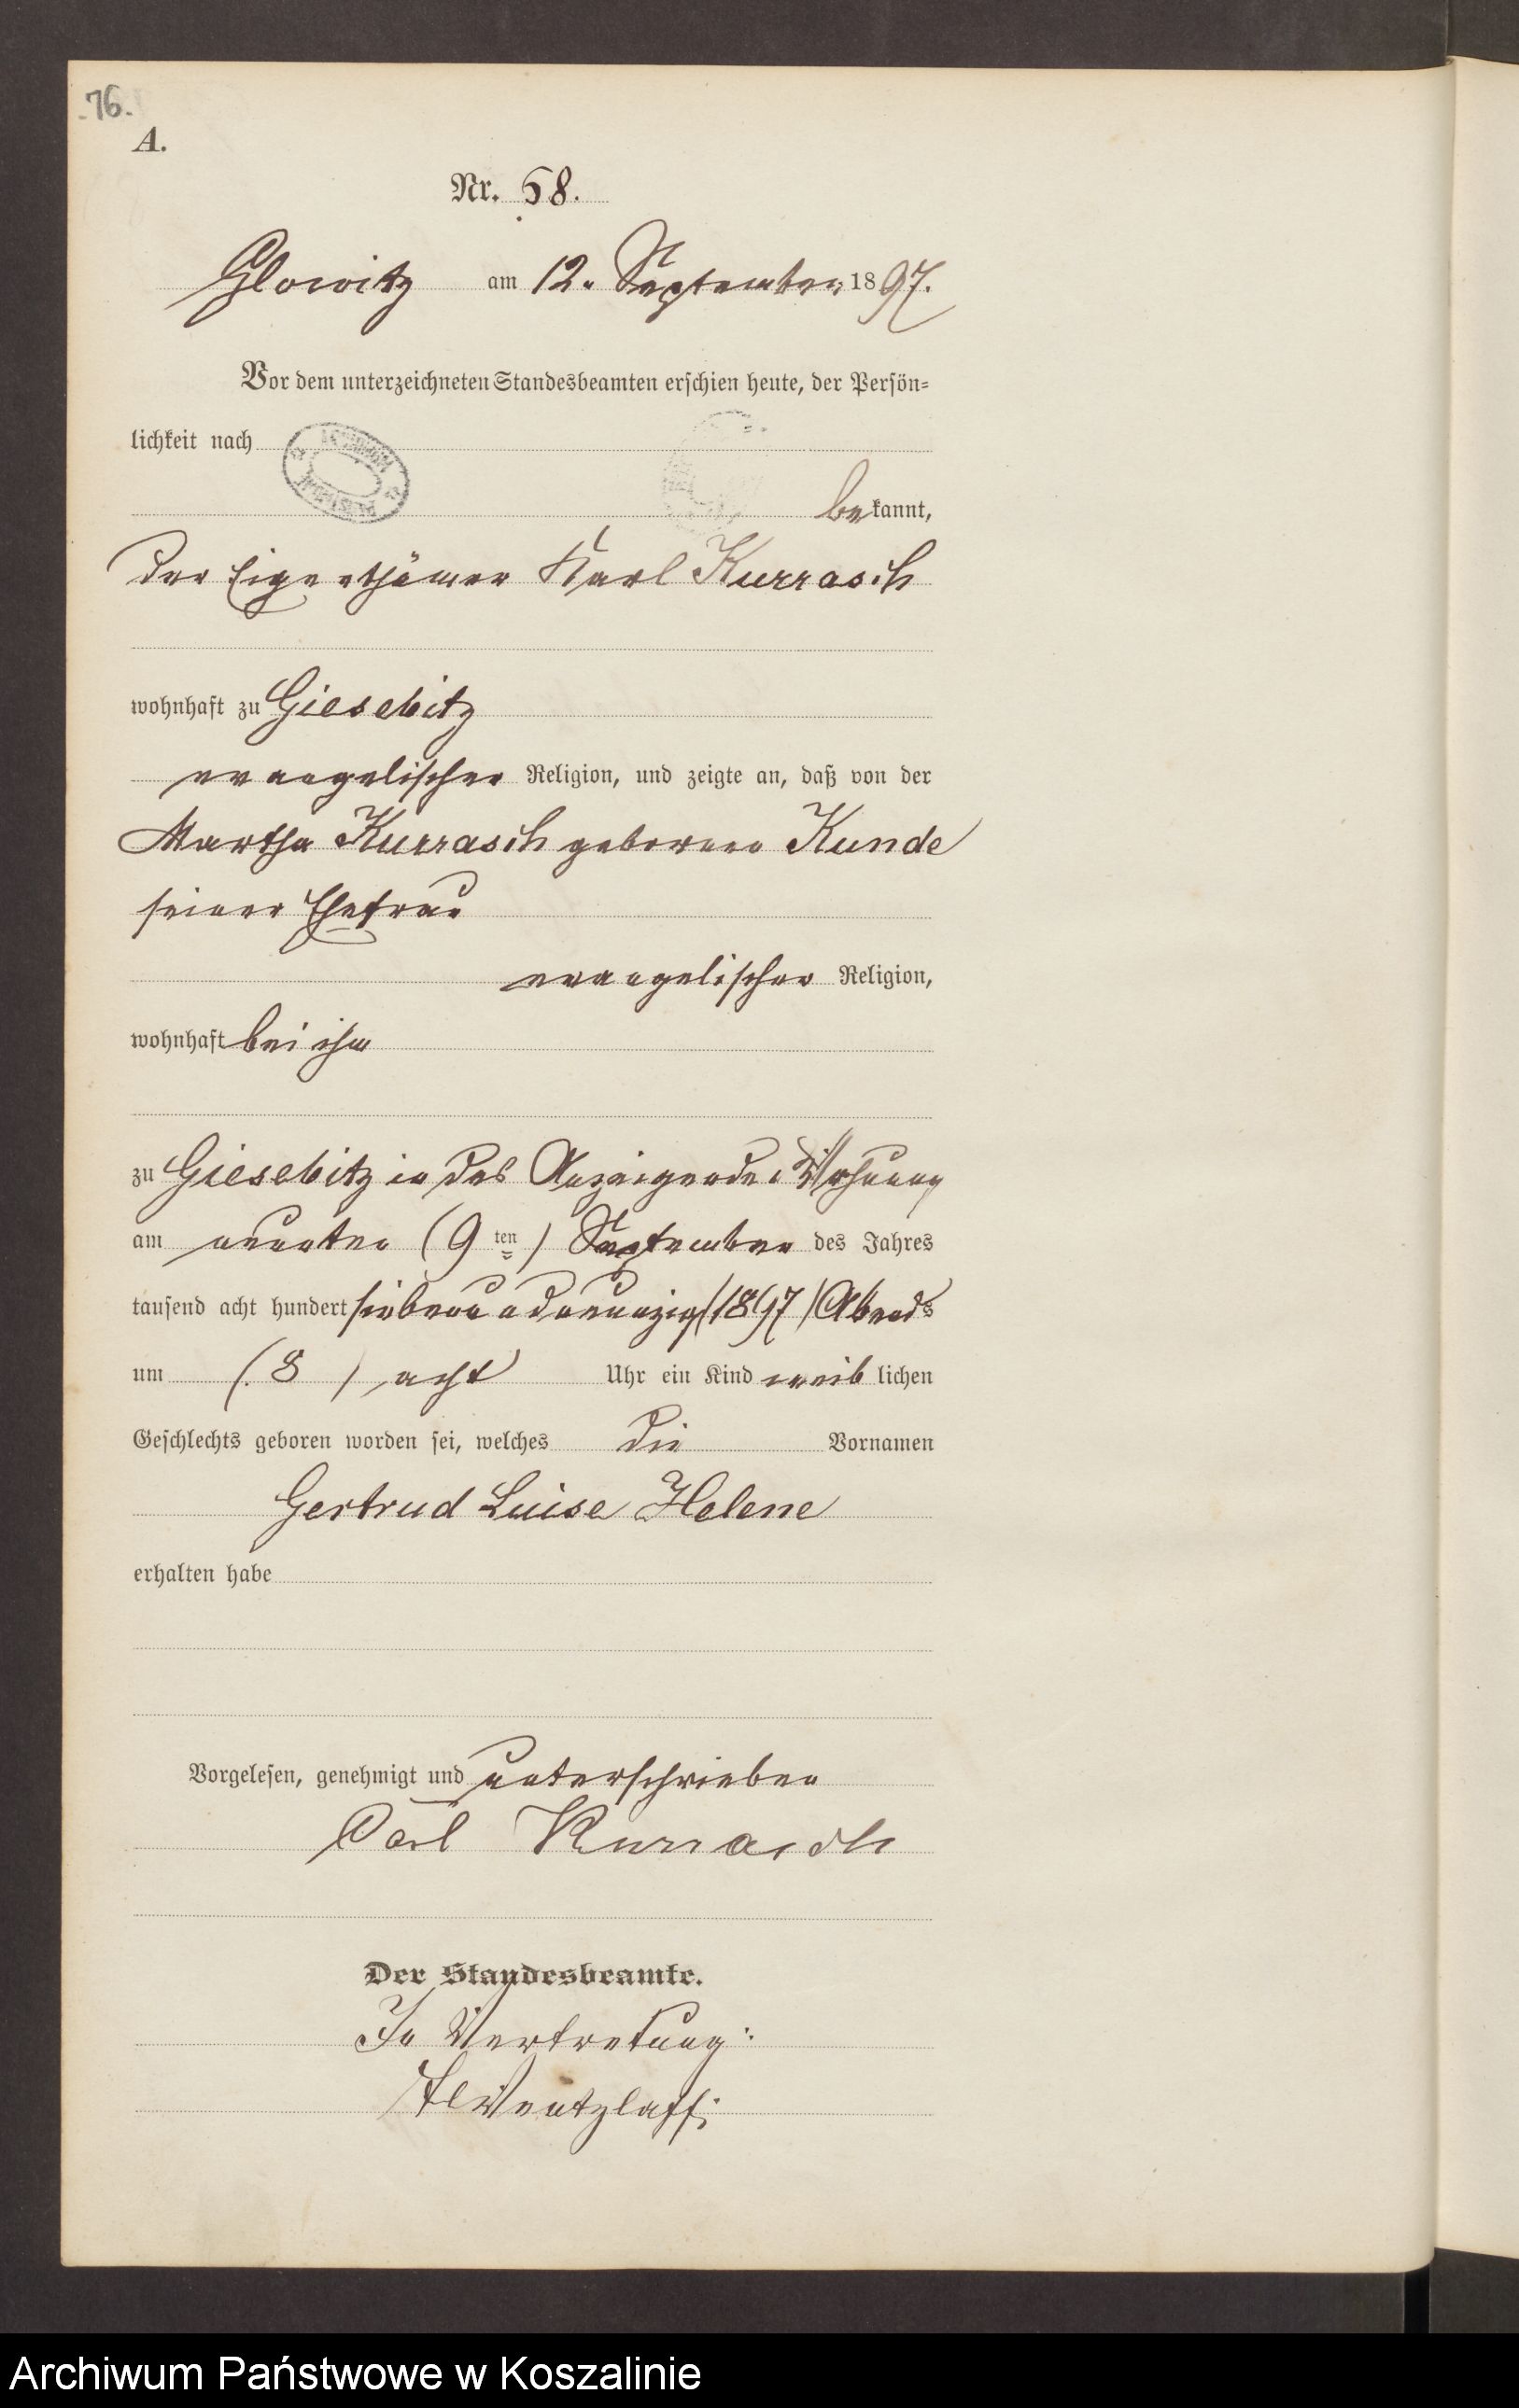 76.
A.
Nr. 68.
Glowitz am 12. September 1897.
Vor dem unterzeichneten Standesbeamten erschien heute, der Persön=
lichkeit nach
bekannt,
der Eigenthümer Karl Kurrasch
wohnhaft zu Giesebitz
evangelischer Religion, und zeigte an, daß von der
Martha Kurrasch geborene Kunde
seiner Ehefrau
evangelischer Religion,
wohnhaft bei ihm
zu Giesebitz in des Anzeigenden Wohnung
am neunten (9 ten) September des Jahres
tausend acht hundert siebenundneunzig (1897) Abends
um (8) acht Uhr ein Kind weiblichen
Geschlechts geboren worden sei, welches die Vornamen
Gertrud Luise Helene
erhalten habe
Vorgelesen, genehmigt und unterschrieben
Carl Kurrasch
Der Standesbeamte.
In Vertretung:
Wentzlaff
Archiwum Państwowe w Koszalinie